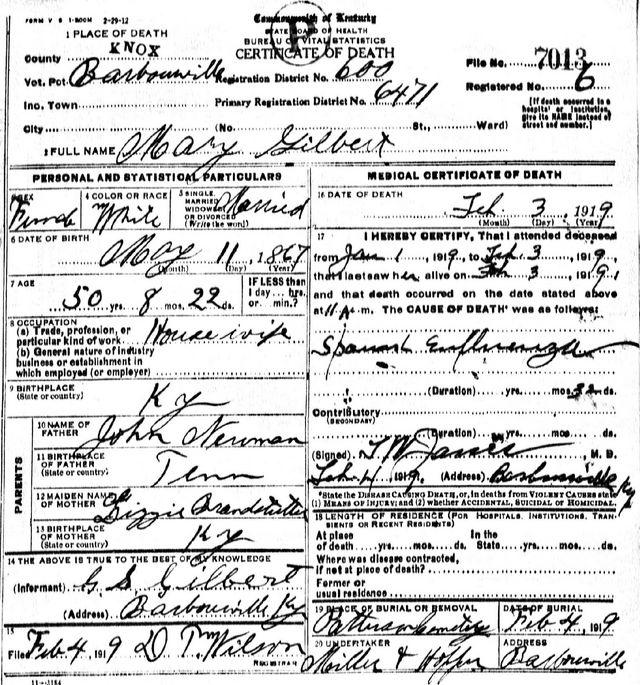 FORM V S 1-ROOM 2-29-12
Commonwealth of Kentucky
STATE BOARD OF HEALTH
BUREAU OF VITAL STATISTICS
CERTIFICATE OF DEATH
P
1 PLACE OF DEATH
County KNOX
Vot. Pct. Barbourville Registration District No. 600
Inc. Town Primary Registration District No. 6471
File No. 7013
Registered No. 6
City (No. St., Ward)
[If death occurred in a hospital or institution, give its NAME instead of street and number.]
2 FULL NAME Mary Gilbert
PERSONAL AND STATISTICAL PARTICULARS
SEX Female
4 COLOR OR RACE White
5 SINGLE, MARRIED, WIDOWED, OR DIVORCED (Write the word) Married
6 DATE OF BIRTH May 11, 1867
(Month) (Day) (Year)
7 AGE 50 yrs. 8 mos. 22 ds.
IF LESS than 1 day... hrs. or... min.?
8 OCCUPATION
(a) Trade, profession, or particular kind of work Housewife
(b) General nature of industry business or establishment in which employed (or employer)
9 BIRTHPLACE (State or country) Ky
PARENTS
10 NAME OF FATHER John Newman
11 BIRTHPLACE OF FATHER (State or country) Tenn
12 MAIDEN NAME OF MOTHER Lizzie
13 BIRTHPLACE OF MOTHER (State or country) Ky
14 THE ABOVE IS TRUE TO THE BEST OF MY KNOWLEDGE
(Informant) G. S. Gilbert
(Address) Barbourville Ky
15
Filed Feb 4, 1919 D. Tm Wilson
REGISTRAR
MEDICAL CERTIFICATE OF DEATH
16 DATE OF DEATH Feb 3, 1919
(Month) (Day) (Year)
17 I HEREBY CERTIFY, That I attended deceased
from Jan 1, 1919, to Feb 3, 1919,
that I last saw her alive on Feb 3, 1919,
and that death occurred on the date stated above
at 11 A. m. The CAUSE OF DEATH* was as follows:
Spanish Enfluenza
(Duration) yrs. mos. 32 ds.
Contributory (SECONDARY)
(Duration) yrs. mos. ds.
(Signed) M. D.
1919. (Address) Barbourville Ky
*State the DISEASE CAUSING DEATH, or, in deaths from VIOLENT CAUSES state (1) MEANS OF INJURY; and (2) whether ACCIDENTAL, SUICIDAL or HOMICIDAL.
18 LENGTH OF RESIDENCE (FOR HOSPITALS, INSTITUTIONS, TRANSIENTS OR RECENT RESIDENTS)
At place of death yrs. mos. ds. In the State yrs. mos. ds.
Where was disease contracted, if not at place of death?
Former or usual residence
19 PLACE OF BURIAL OR REMOVAL Cemetery
DATE OF BURIAL Feb 4, 1919
20 UNDERTAKER Miller & Hopper
ADDRESS Barbourville
11-3184